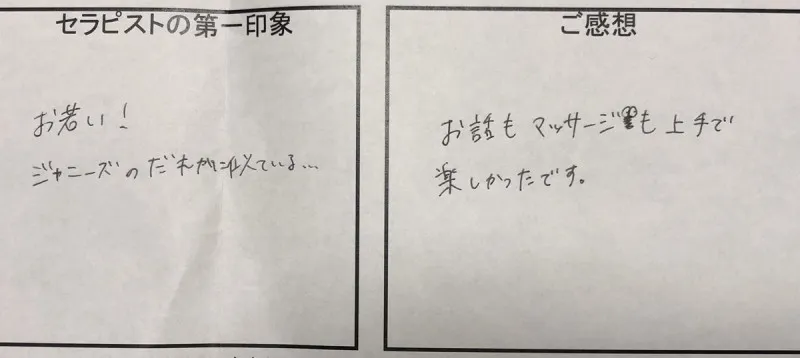 セラピストの第一印象
お若い!
ジャニーズのだれかに似ている...
ご感想
お話もマッサージも上手で
楽しかったです。